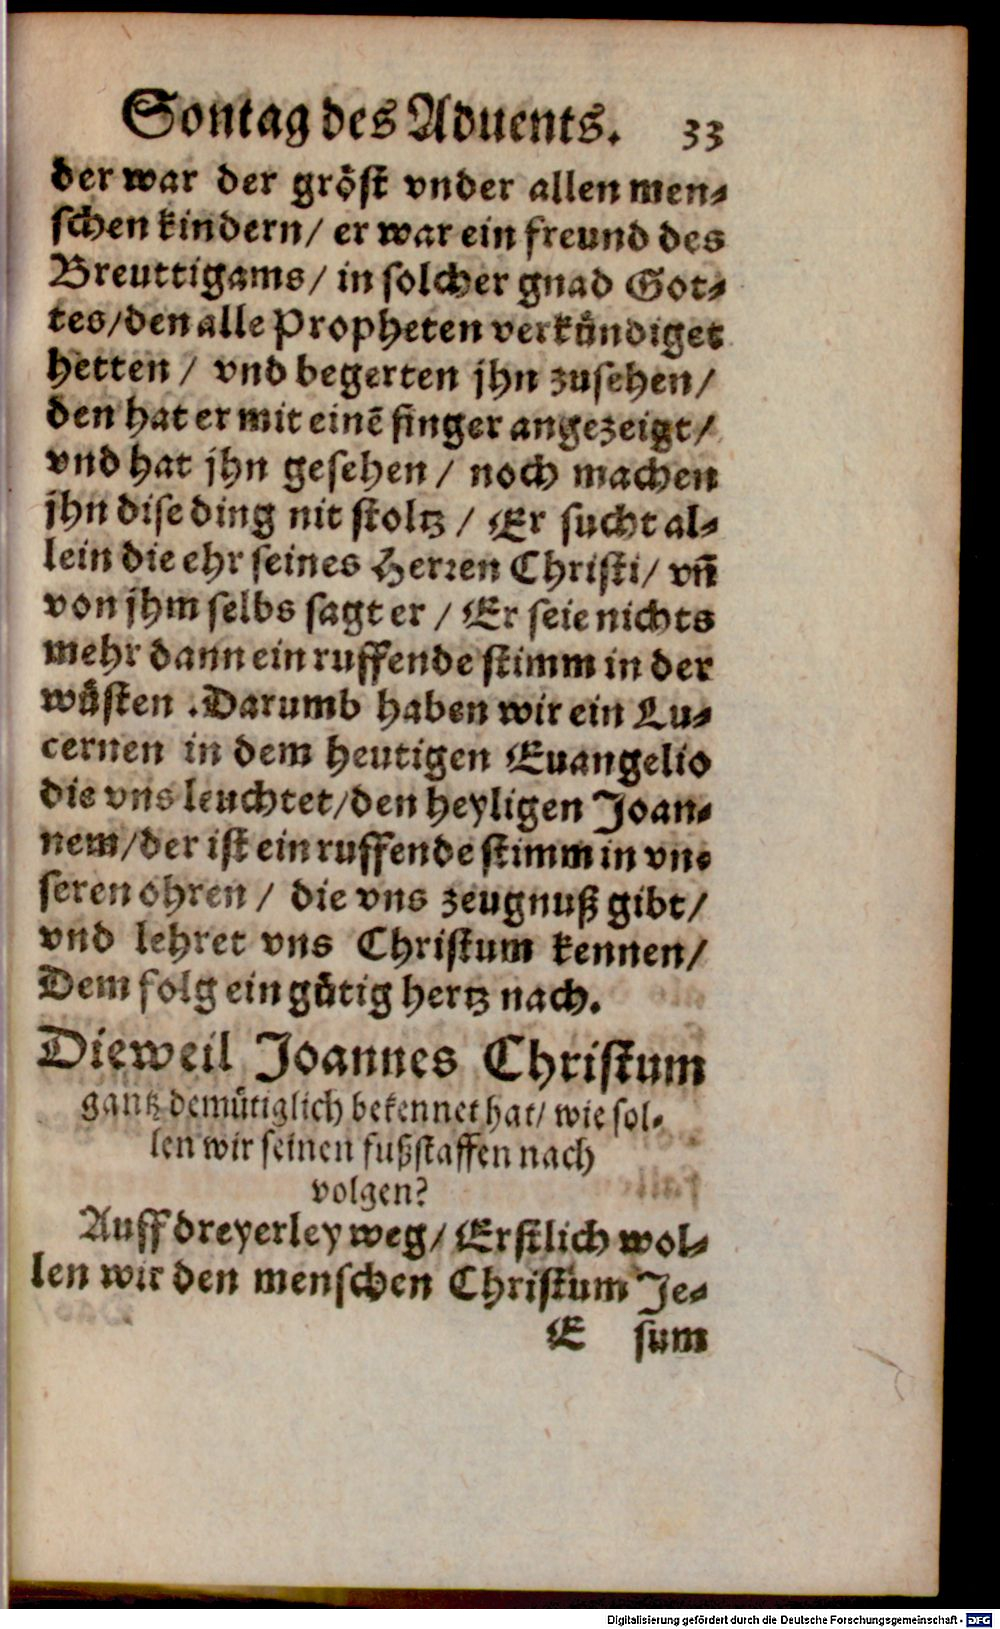 Sontag des Aduents. 33
der war der gröst vnder allen men-
schen kindern/ er war ein freund des
Breuttigams/ in solcher gnad Got-
tes/den alle Propheten verkündiget
hetten / vnd begerten jhn zusehen/
den hat er mit einē finger angezeigt/
vnd hat jhn gesehen / noch machen
jhn dise ding nit stoltz / Er sucht al-
lein die ehr seines Herren Christi/ vñ
von jhm selbs sagt er / Er seie nichts
mehr dann ein ruffende stimm in der
wüsten .Darumb haben wir ein Lu-
cernen in dem heutigen Euangelio
die vns leuchtet/den heyligen Joan-
nem/der ist ein ruffende stimm in vn-
seren ohren / die vns zeugnuß gibt/
vnd lehret vns Christum kennen/
Dem folg ein gütig hertz nach.
Dieweil Joannes Christum
gantz demütiglich bekennet hat/ wie sol-
len wir seinen fußstaffen nach
volgen?
Auff dreyerley weg/ Erstlich wol-
len wir den menschen Christum Je-
E sum
Digitalisierung gefördert durch die Deutsche Forschungsgemeinschaft - DFG